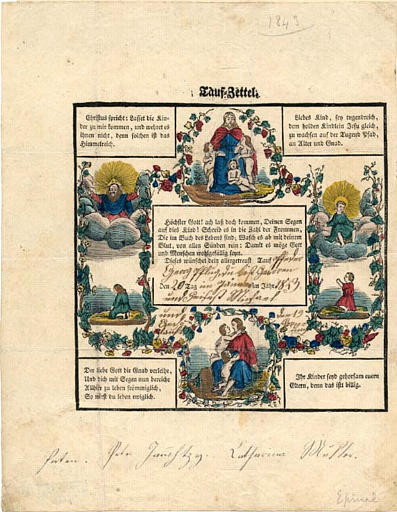 1843
Tauf-Zettel.
Christus spricht: Lasset die Kin-
der zu mir kommen, und wehret es
ihnen nicht, denn solchen ist das
Himmelreich.
Liebes Kind, sey tugendreich,
dem holden Kindlein Jesu gleich,
zu wachsen auf der Tugend Pfad,
an Alter und Gnad.
Höchster Gott! ach laß doch kommen, Deinen Segen
auf dies Kind! Schreib es in die Zahl der Frommen,
Die im Buch des Lebens sind; Wasch es ab mit deinem
Blut, von allen Sünden rein: Damit es möge Gott
und Menschen wohlgefällig seyn.
Dieses wünschet dein allergetreust Tauf
Georg
Den 20 Tag im Januar im Jahr 1843
und
und
Der liebe Gott die Gnad verleihe,
Und dich mit Segen nun bereiche
Allhier zu leben frömmiglich,
So wirst du leben ewiglich.
Ihr Kinder seyd gehorsam euern
Eltern, denn das ist billig.
Catharina Müller.
Epinal